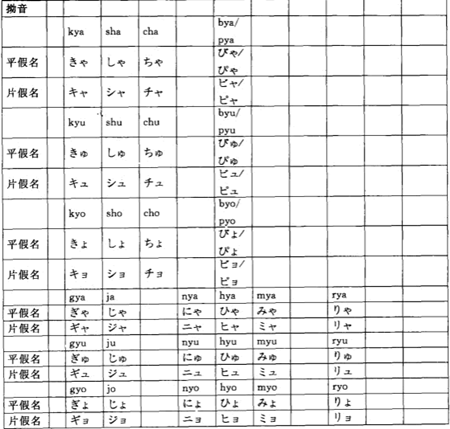 拗音
kya sha cha bya/
pya
平假名 きゃ しゃ ちゃ びゃ/
ぴゃ
片假名 キャ シャ チャ ビャ/
ピャ
kyu shu chu byu/
pyu
平假名 きゅ しゅ ちゅ びゅ/
ぴゅ
片假名 キュ シュ チュ ビュ/
ピュ
kyo sho cho byo/
pyo
平假名 きょ しょ ちょ びょ/
ぴょ
片假名 キョ ショ チョ ビョ/
ピョ
gya ja nya hya mya rya
平假名 ぎゃ じゃ にゃ ひゃ みゃ りゃ
片假名 ギャ ジャ ニャ ヒャ ミャ リャ
gyu ju nyu hyu myu ryu
平假名 ぎゅ じゅ にゅ ひゅ みゅ りゅ
片假名 ギュ ジュ ニュ ヒュ ミュ リュ
gyo jo nyo hyo myo ryo
平假名 ぎょ じょ にょ ひょ みょ りょ
片假名 ギョ ジョ ニョ ヒョ ミョ リョ